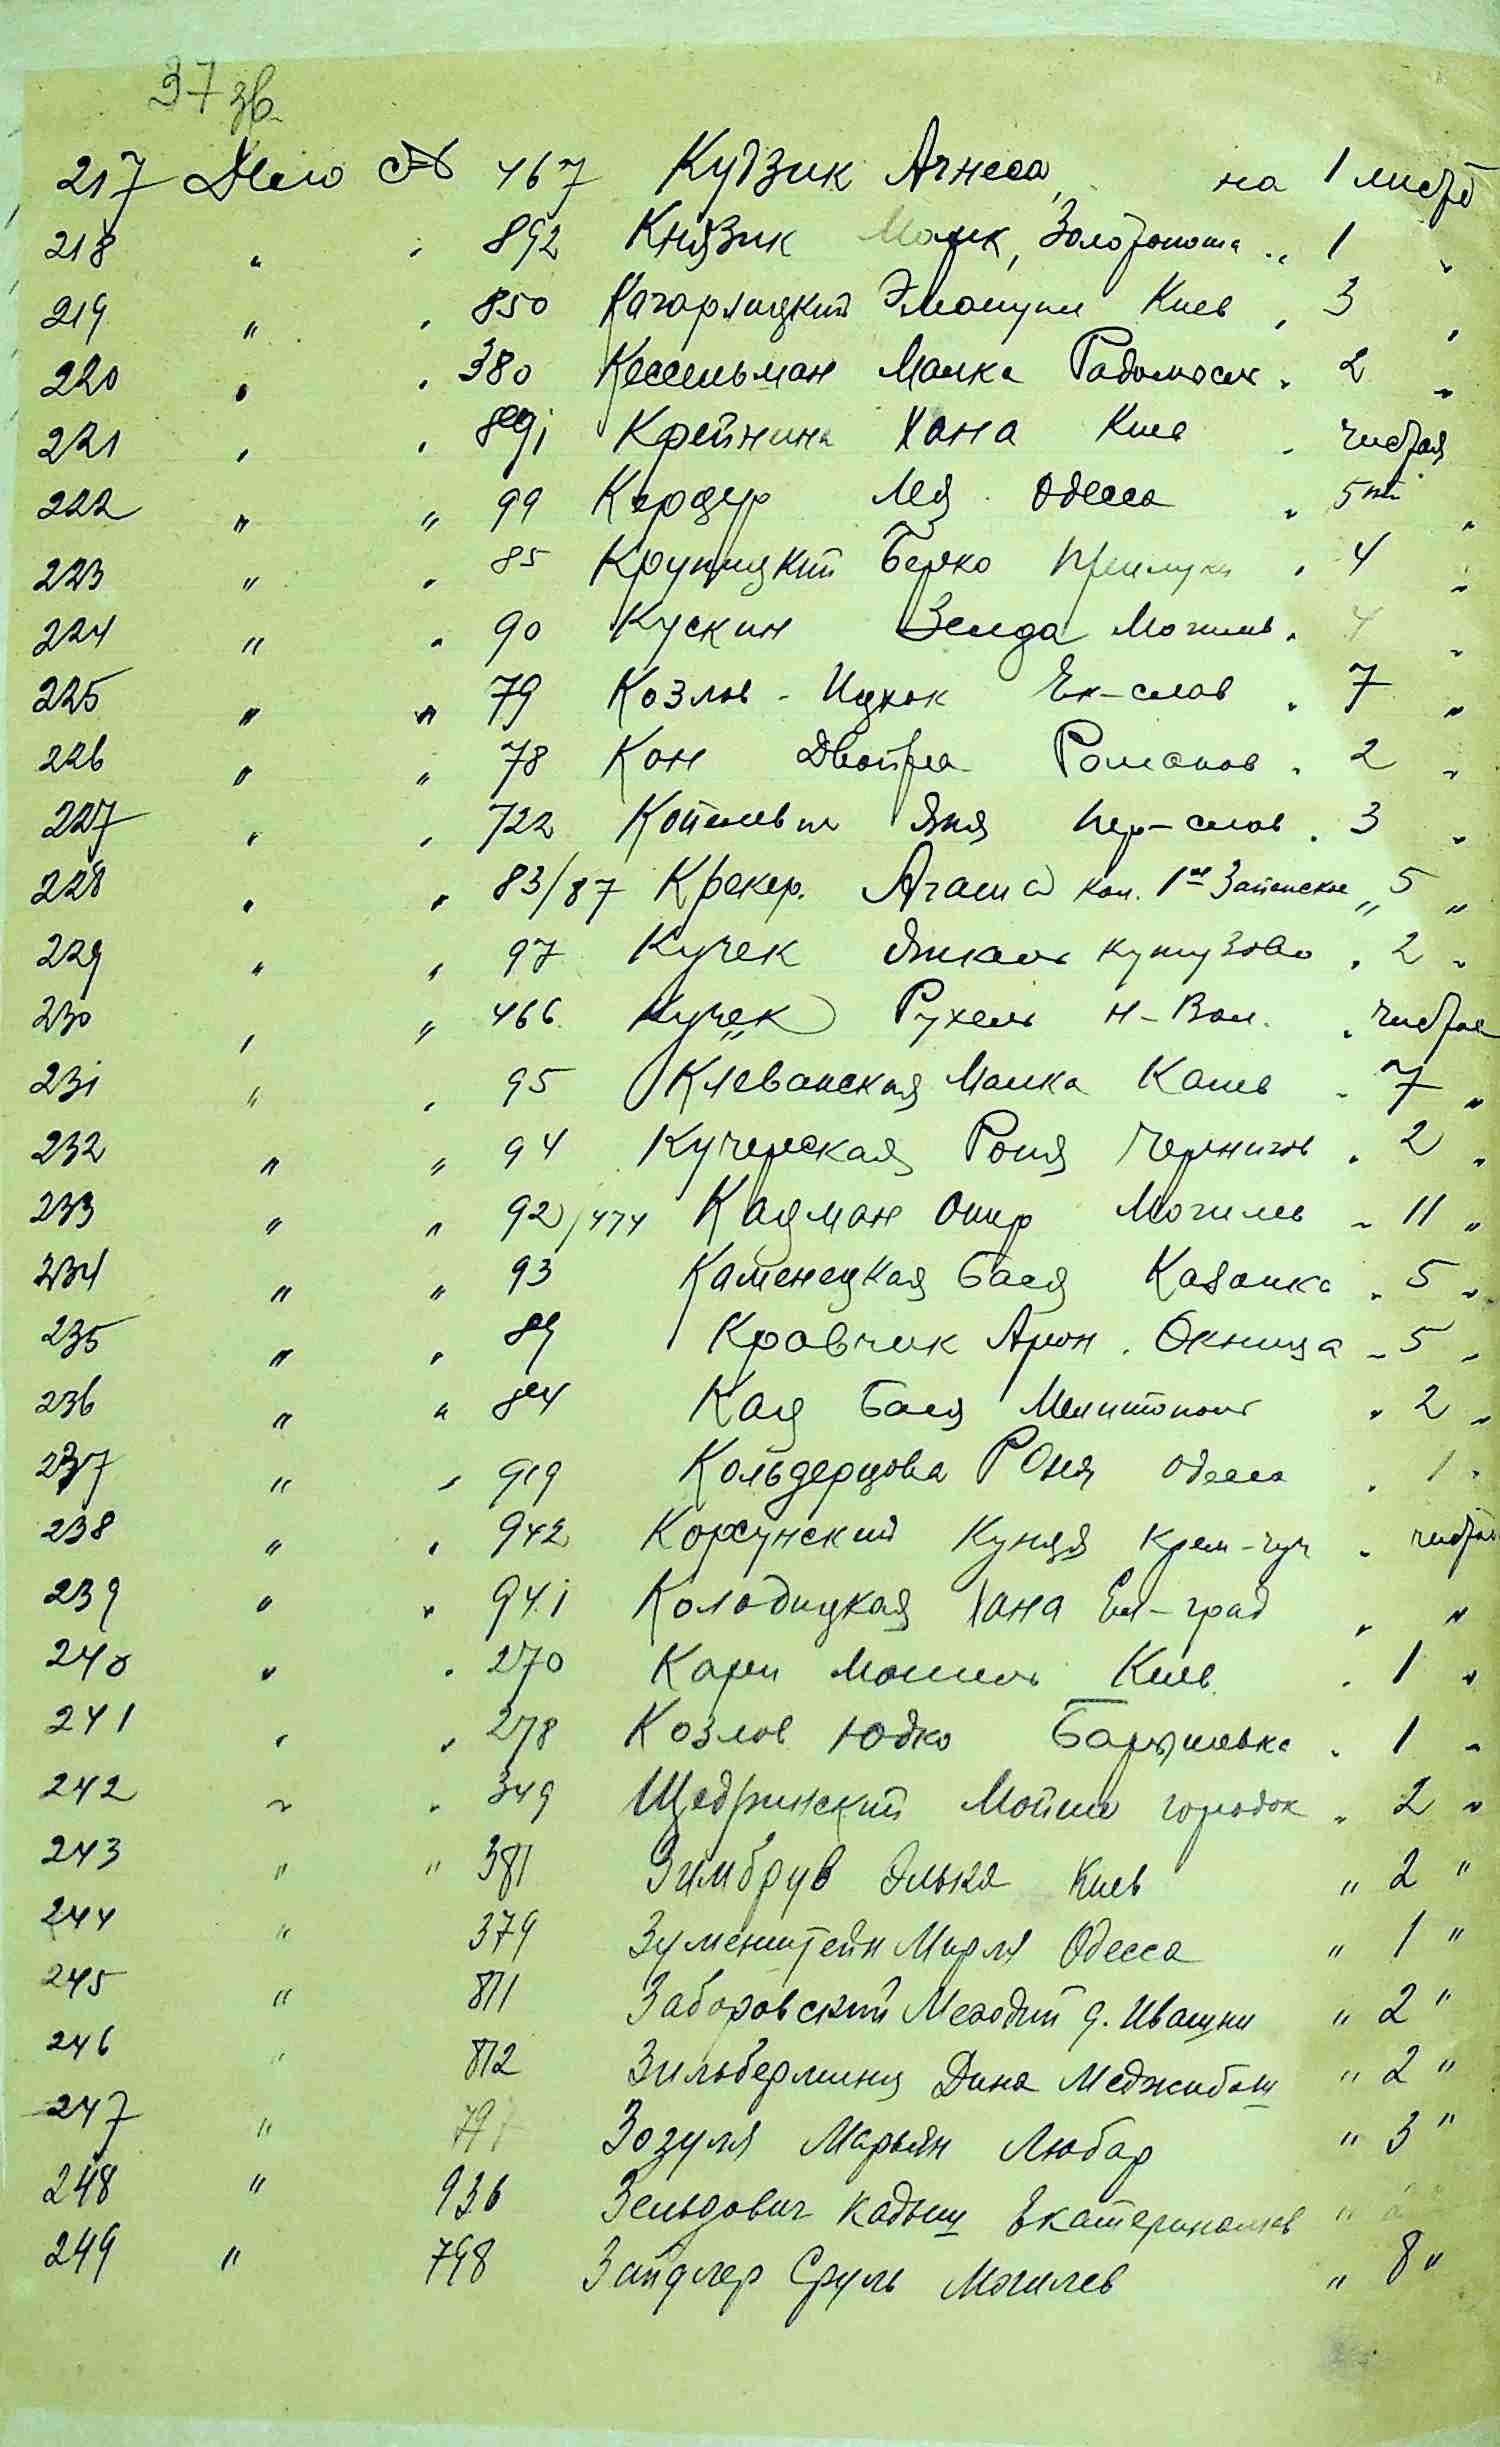 37 зв.
217 Дело № 467 Кудзик Агнеса, на 1 листе
218 " " 892 Князик Марк, Золотоноша " 1 "
219 " " 850 Кагарлицкий Эмануил Киев " 3 "
220 " " 380 Кесельман Малка " 2 "
221 " " 891 Крейнина Хана Киев " чистая
222 " " 99 Лея Одесса " 5ти "
223 " " 85 Крупицкий Берко Прилуки " 4 "
224 " " 90 Кускин Зелда Могилев " 4 "
225 " " 79 Козлов - Ицхок Ек-слав " 7 "
226 " " 78 Кон Двойра Романов " 2 "
227 " " 722 Хая " 3 "
228 " " 83/87 Крекер. Агаша кол. " 5 "
229 " " 97 Кучек Янкель Кутузово " 2 "
230 " " 466 Кучек Рухель Н-Вол. " чистая
231 " " 95 Клеванская Малка Канев " 7 "
232 " " 94 Кучерская Роня Чернигов " 2 "
233 " " 92/474 Кацман Ошер Могилев " 11 "
234 " " 93 Каменецкая Бася Казанка " 5 "
235 " " 89 Кравчик Арон. Окница " 5 "
236 " " 84 Кац Бася Мелитополь " 2 "
237 " " 919 Кольдерцова Роня Одесса " 1 "
238 " " 942 Корхунский Куняя Крем-чуг " чистая
239 " " 941 Колодицкая Хана Ел-град " "
240 " " 270 Карп Киев " 1 "
241 " " 278 Козлов Юдко Барышевка " 1 "
242 " " 349 Щедринский Мойше городок " 2 "
243 " " 381 Зимбрув Элька Киев " 2 "
244 " 379 Зуменштейн Мирля Одесса " 1 "
245 " 811 Заборовский Меходий д. Иващки " 2 "
246 " 812 Зильберминц Дина Меджибош " 2 "
247 " 797 Зозуля Марьян Любар " 3 "
248 " 936 Зельдович Кадыш Екатеринослав " 2
249 " 798 Зайдлер Сруль Могилев " 8 "